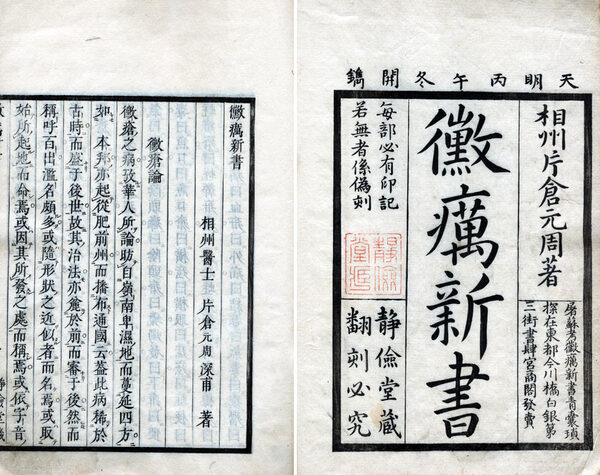 天明丙午冬開鐫
相州片倉元周著
屠蘇考黴癘新書青囊瑣
探在東都今川橋白銀第
三街書肆宮商閣發賣
黴癘新書
每部必有印記
若無者係偽刻
靜儉堂藏
翻刻必究
黴癘新書
相州醫士 片倉元周深甫 著
黴瘡論
黴瘡之病攷華人所論昉自嶺南卑濕地而蔓延四方
如本邦亦起從肥前州而播布通國云蓋此病稀於
古時而盛于後世故其治法亦麁於前而審于後然而
稱呼百出濫名頗多或隨形狀之近似者而名焉或取
始所起地而命焉或因其所發之處而稱焉或依字音